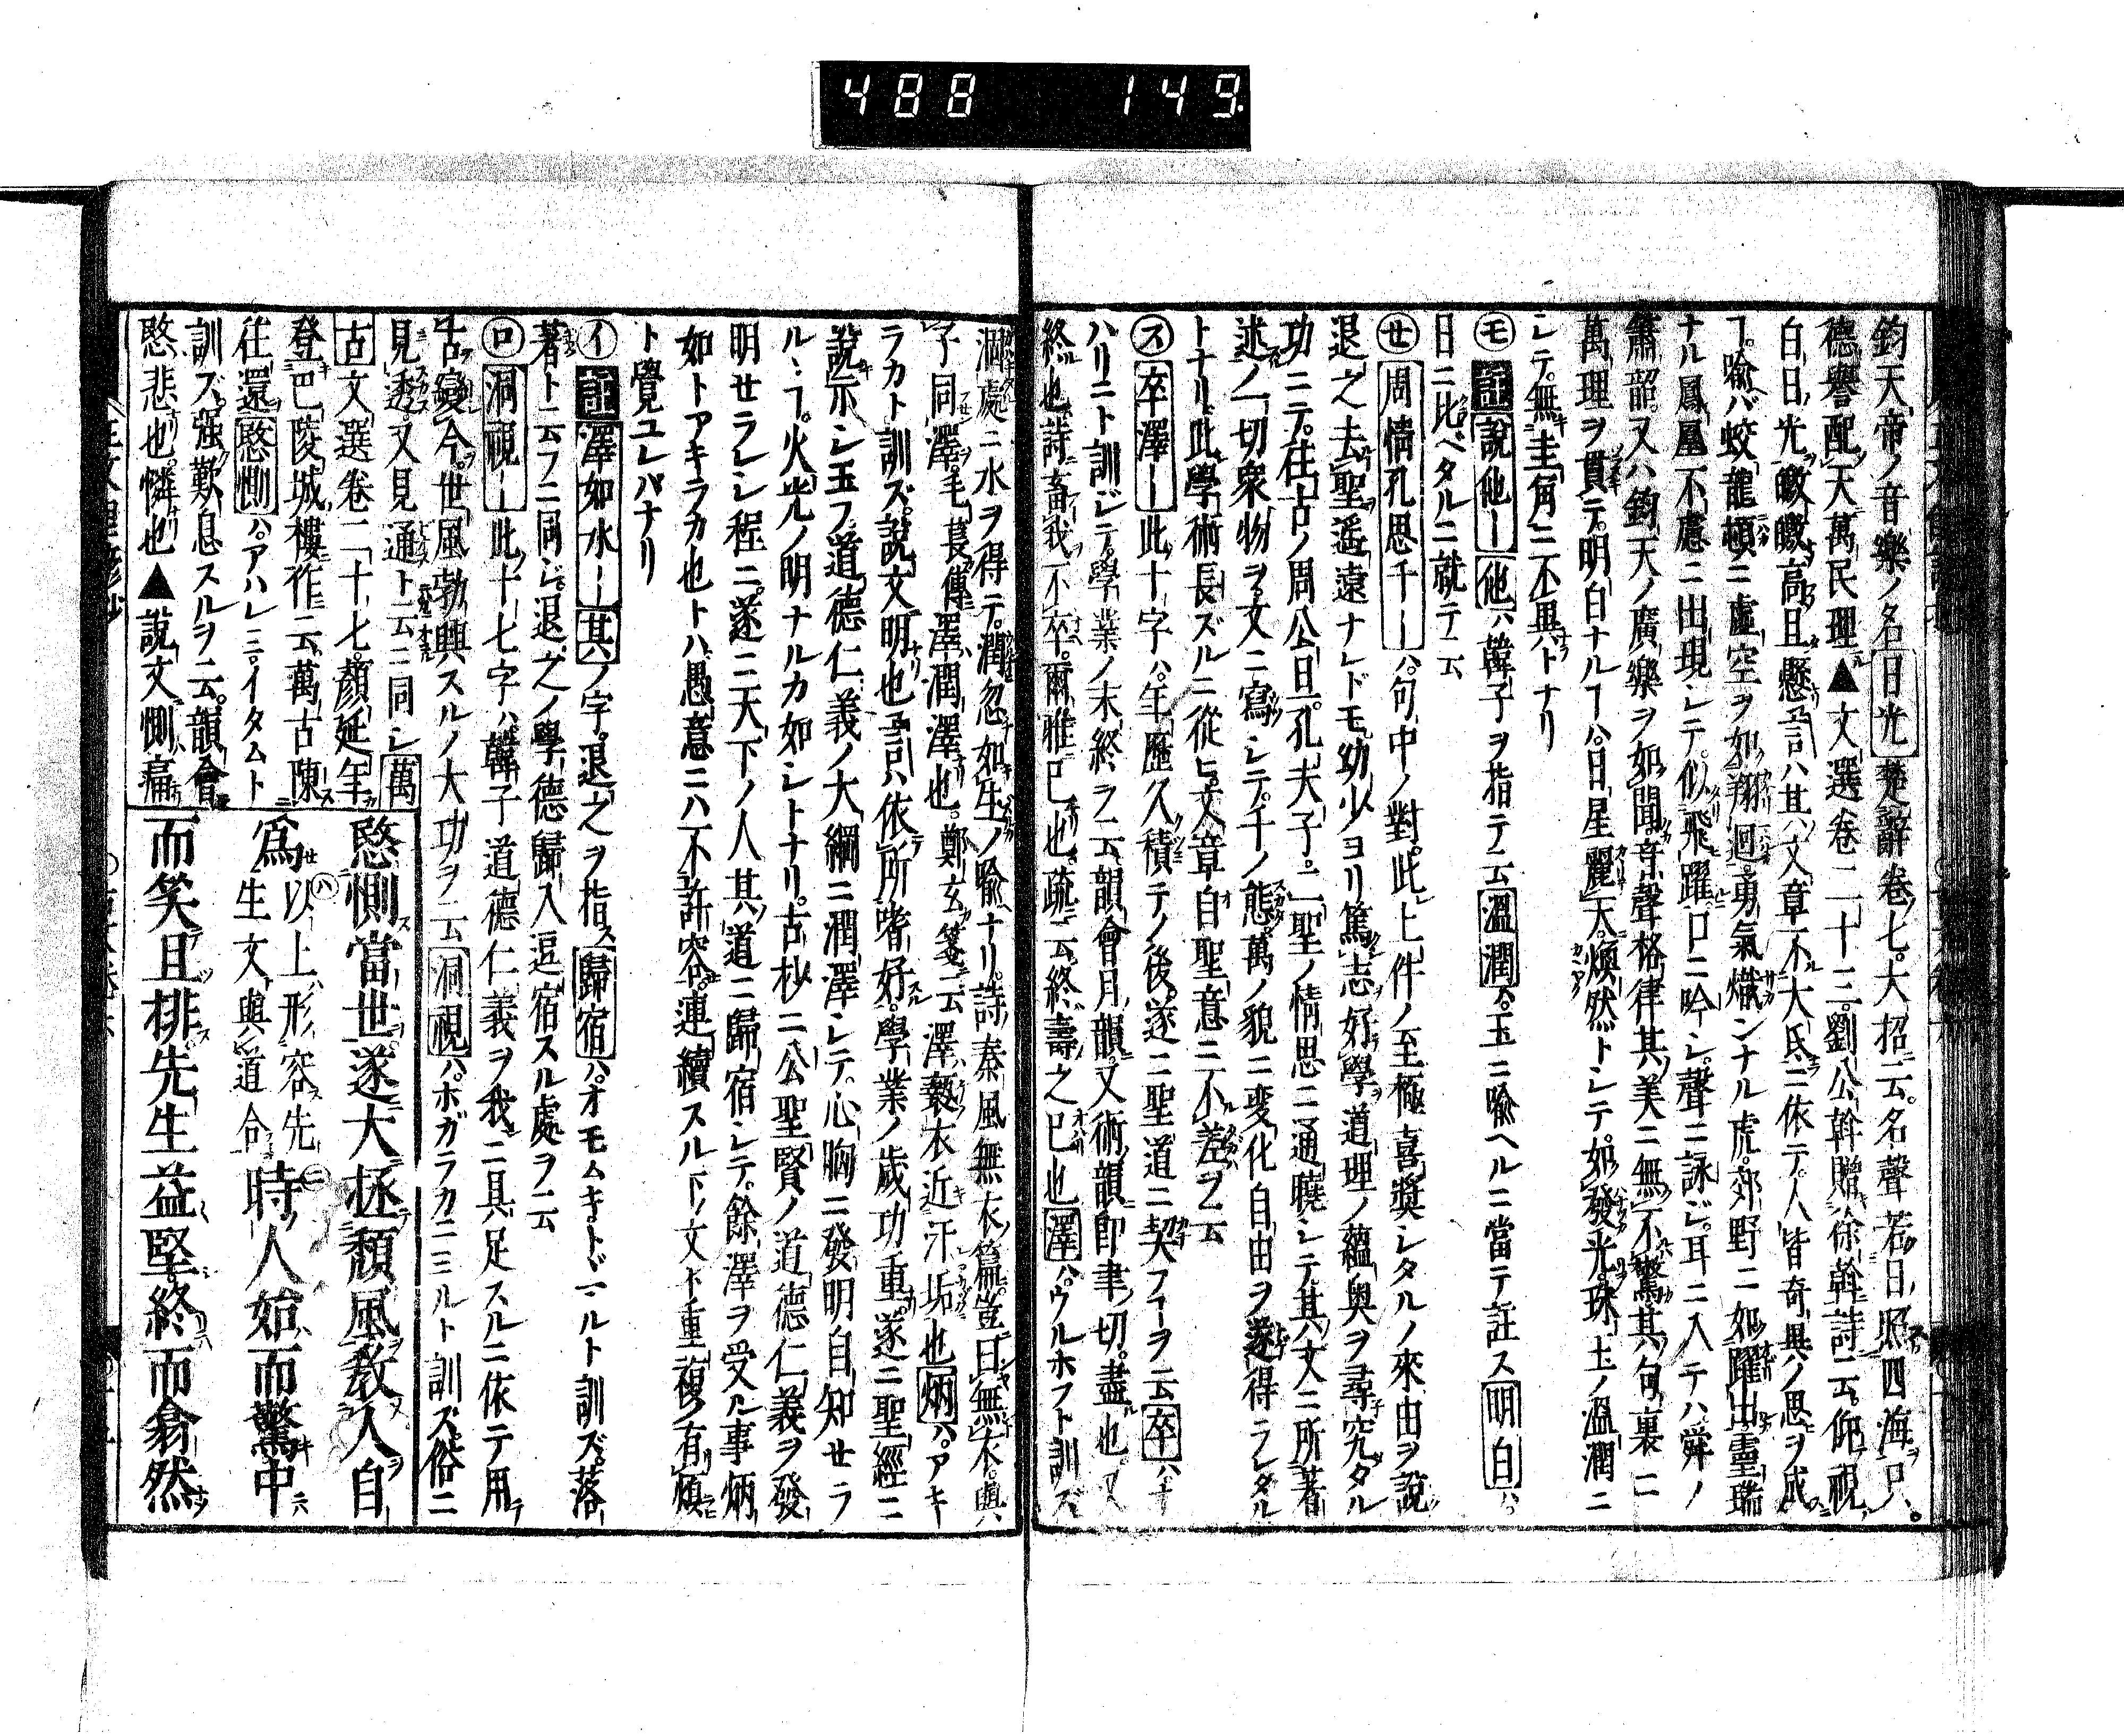 488 149
鈞天帝ノ音樂ノ名日光楚辭卷七大招云名聲若日照四海只
德譽配天萬民理▲文選卷二十三劉公幹贈徐幹詩云仰視
白日光皦皦高且懸言ハ其文章不大氐ニ依テ人皆奇異ノ思ヲ成
ヿ喩バ蛟龍頓ニ虛空ヲ如翔迴勇氣熾ンナル虎郊野ニ如躍出靈瑞
ナル鳳凰不慮ニ出現シテ似飛躍口ニ吟シ聲ニ詠ジ耳ニ入テハ舜ノ
簫韶又ハ鈞天ノ廣樂ヲ如聞音聲格律其美ニ無不驚其句裏ニ
萬理ヲ貫テ明白ナルヿハ日星麗天煥然トシテ如發光珠玉ノ溫潤ニ
シテ無圭角ニ不異トナリ
モ註說他ー他ハ韓子ヲ指テ云溫潤ハ玉ニ喩ヘルニ當テ註ス明白ハ
日ニ比ベタルニ就テ云
セ周情孔思千ーハ句中ノ對此上件ノ至極喜奬シタルノ來由ヲ說
退之去聖遥遠ナレドモ幼少ヨリ篤志好學道理ノ蘊奥ヲ尋究タル
功ニテ往古ノ周公旦孔夫子二聖ノ情思ニ通曉シテ其文ニ所著
述ノ一切衆物ヲ文ニ寫シテ千ノ態萬ノ貌ニ変化自由ヲ遂得ラレタル
トナリ此學術長ズルニ從ヒ文章自聖意ニ不差ヲ云
ス卒澤ー此十字ハ年歷久積テノ後遂ニ聖道ニ契フヿヲ云卒ハヲ
ハリニト訓ジテ學業ノ末終ヲ云韻會月韻又術韻卽聿切盡也又
終也詩畜我不卒爾雅已也疏云終壽之已也澤ハウルホフト訓ズ
涸處ニ水ヲ得テ潤忽如生ノ喩ナリ詩秦風無衣篇豈曰無衣與
子同澤毛萇傳澤潤澤也鄭玄箋云澤褻衣近汗垢也炳ハアキ
ラカト訓ズ說文明也言ハ依所嗜好學業ノ歲功重遂ニ聖經ニ
說示シ玉フ道德仁義ノ大綱ニ潤澤シテ心胸ニ發明自知セラ
ルヽヿ火光ノ明ナルカ如シトナリ古抄ニ公聖賢ノ道德仁義ヲ發
明セラレシ程ニ遂ニ天下ノ人其道ニ歸宿シテ餘澤ヲ受ル事炳
如トアキラカ也トハ愚意ニハ不許容連續スル下ノ文ト重複ノ有煩
ト覺ユレバナリ
イ註澤如水ー其ノ字退之ヲ指ス歸宿ハオモムキトヾマルト訓ズ落
著ト云フニ同ジ退之ノ學德歸入逗宿スル處ヲ云
ロ洞視ー此十七字ハ韓子道德仁義ヲ我ニ具足スルニ依テ用
古變今世風勃興スルノ大功ヲ云洞視ハホガラカニミルト訓ズ俗ニ
見透又見通ト云ニ同シ萬
古文選卷二十七顏延年
登巴陵城樓作云萬古陳
往還愍惻ハアハレミイタムト
訓ズ强歎息スルヲ云韻會
愍悲也憐也▲說文惻痛
愍惻當世遂大拯頽風教人自
爲以上形容先生文與道合ハ時ニ人始而驚中
而笑且排先生益堅終而翕然